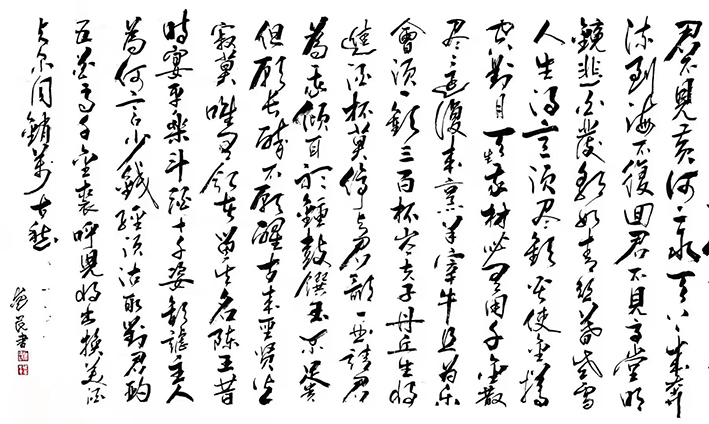 君不見黃河之水天上來奔
流到海不復回君不見高堂明
鏡悲白髮朝如青絲暮成雪
人生得意須盡歡莫使金樽
空對月天生我材必有用千金散
盡還復來烹羊宰牛且為樂
會須一飲三百杯岑夫子丹丘生將
進酒杯莫停與君歌一曲請君
為我傾耳聽鐘鼓饌玉不足貴
但願長醉不願醒古來聖賢皆
寂寞唯有飲者留其名陳王昔
時宴平樂斗酒十千恣歡謔主人
為何言少錢經須沽取對君酌
五花馬千金裘呼兒將出換美酒
與爾同銷萬古愁
良書